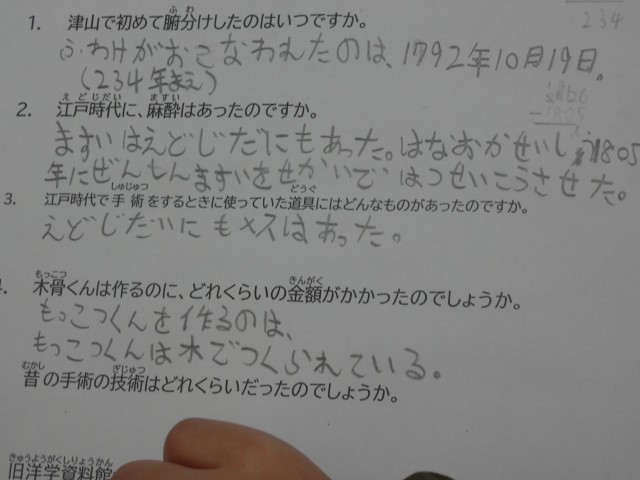 234
1. 津山で初めて腑分けしたのはいつですか。
ふわけがおこなわれたのは、1792年10月19日。
(234年まえ)
2. 江戸時代に、麻酔はあったのですか。
-1805
ますいはえどじだいにもあった。はなおかせいしゅう1805
年にぜんしんますいをせかいではつせいこうさせた。
3. 江戸時代で手術をするときに使っていた道具にはどんなものがあったのですか。
えどじだいにもメスはあった。
4. 木骨くんは作るのに、どれくらいの金額がかかったのでしょうか。
もっこつくんを作るのは、
もっこつくんは木でつくられている。
昔の手術の技術はどれくらいだったのでしょうか。
旧洋学資料館